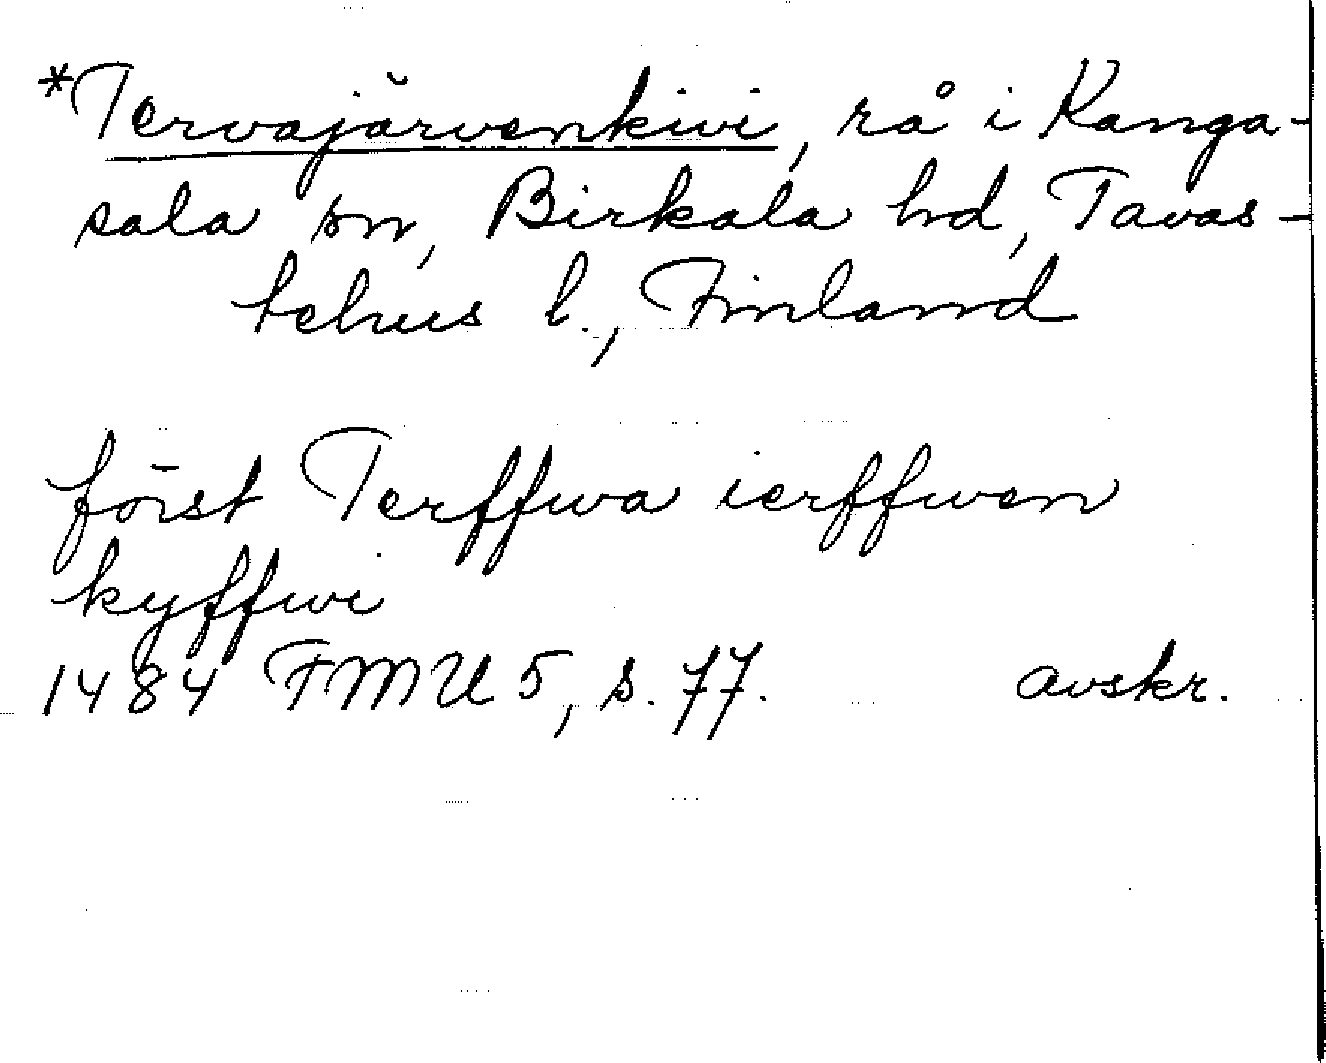 *Tervajärvenkivi, rå i Kanga-
sala sn, Birkala hd, Tavas-
tehus l., Finland
först Terffwa ierffwen
kyffwi
1484 FMU 5, s. 77. avskr.